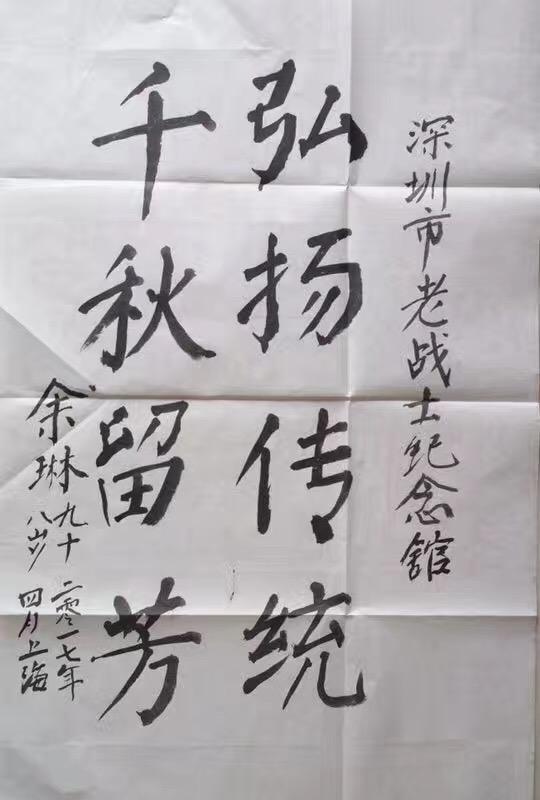 深圳市老战士纪念馆
弘扬传统
千秋留芳
余琳九十
八岁
二零一七年
四月上海